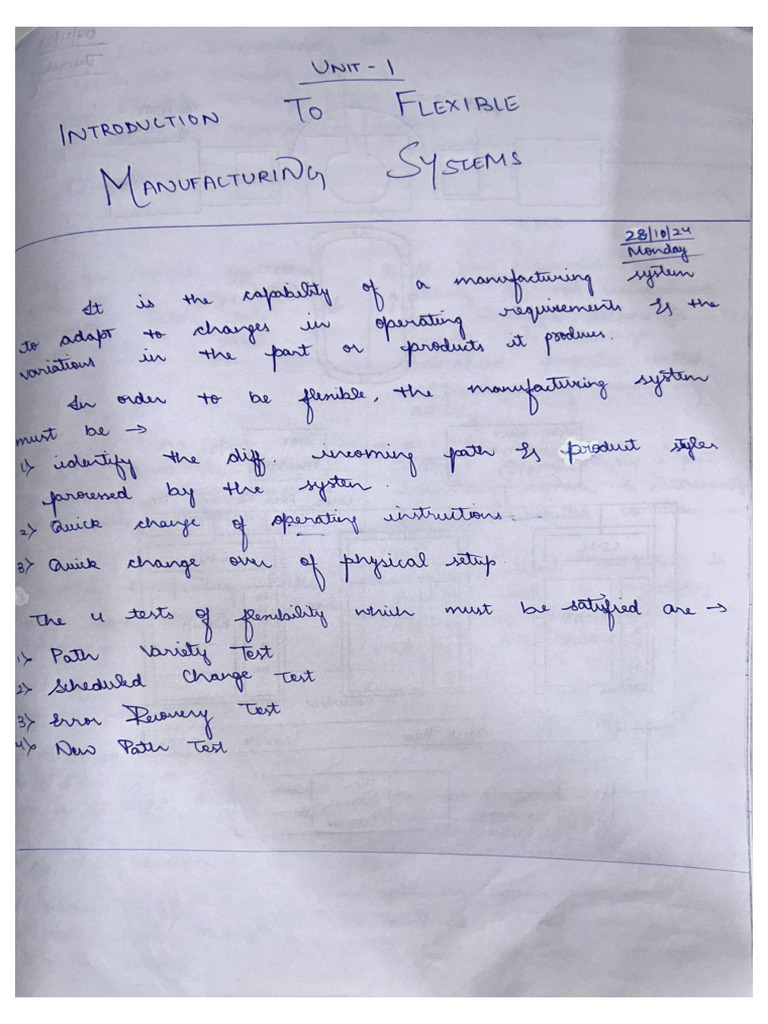 UNIT - 1
INTRODUCTION TO FLEXIBLE
MANUFACTURING SYSTEMS
28/10/24
Monday
It is the capability of a manufacturing system
to adapt to changes in operating requirements & the
variations in the part or products it produces.
In order to be flenible, the manufacturing system
must be →
1) identify the diff. incoming path & product styles
processed by the system.
2) Quick change of operating instructions.
3) Quick change over of physical setup.
The 4 tests of flenibility which must be satisfied are →
1) Path Variety Test
2) Scheduled Change Test
3) Error Recovery Test
4) New Path Test